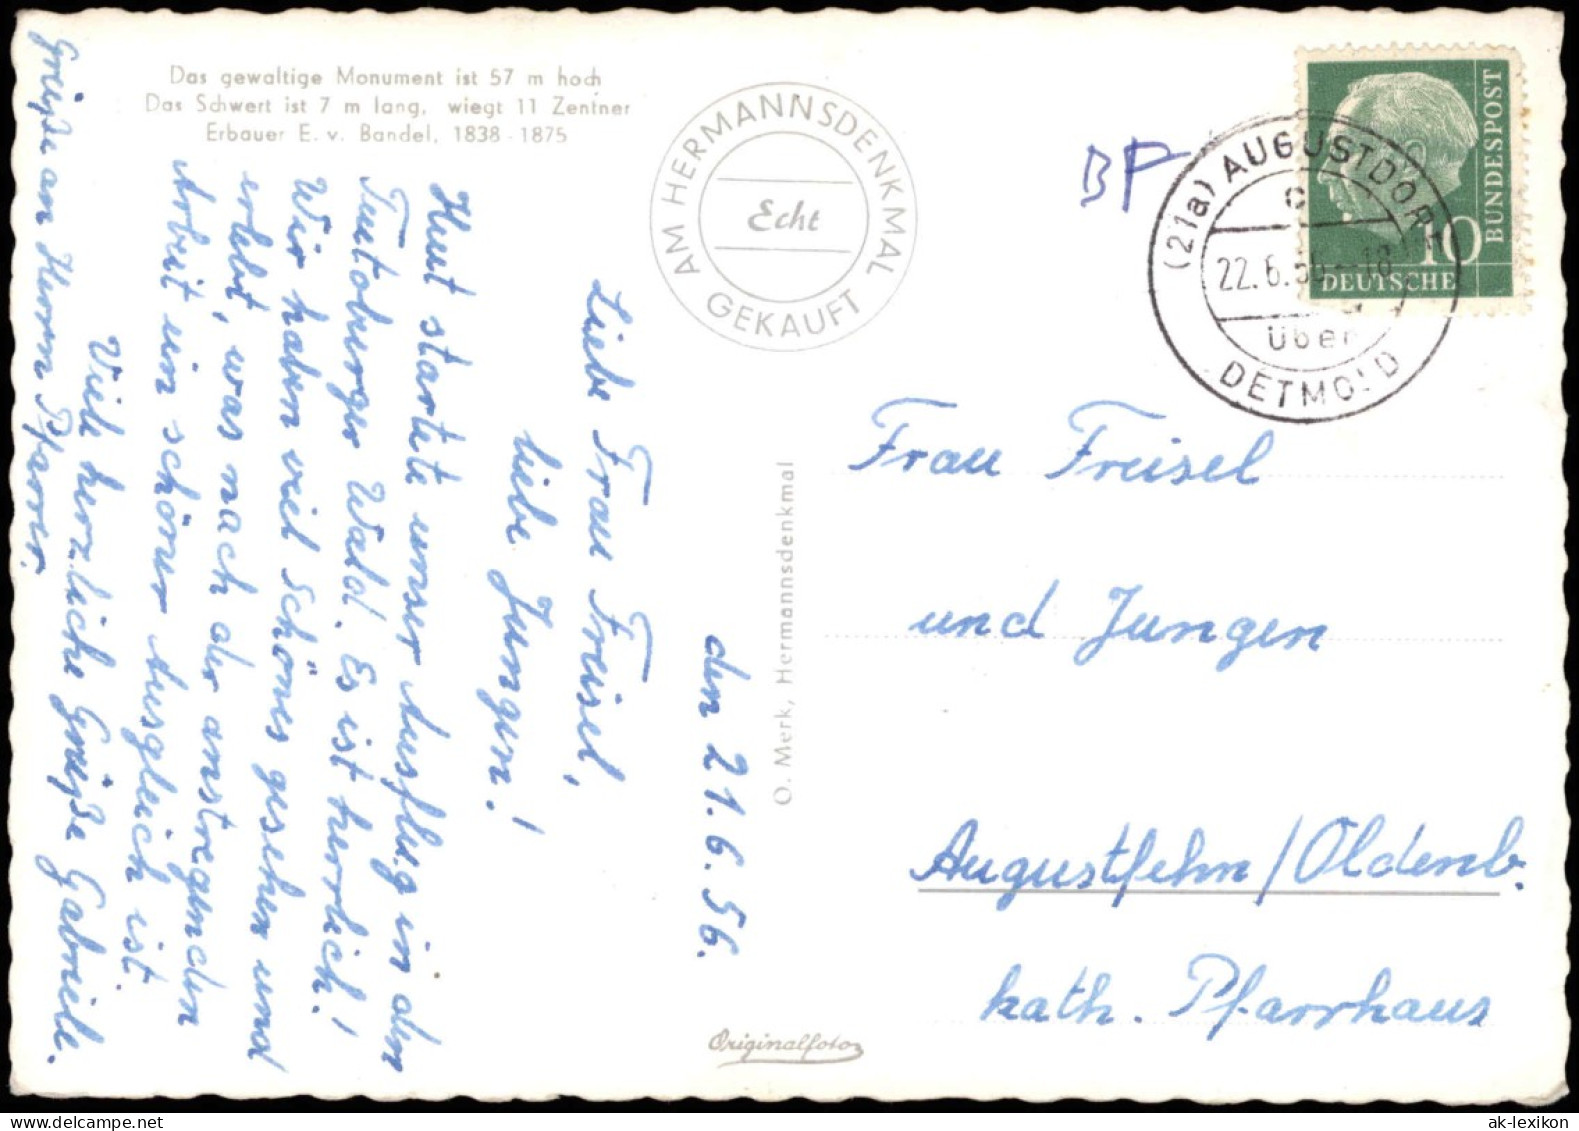 Das gewaltige Monument ist 57 m hoch
Das Schwert ist 7 m lang, wiegt 11 Zentner
Erbauer E. v. Bandel, 1838-1875
AM HERMANNSDENKMAL
Echt
GEKAUFT
BP
BUNDESPOST
10
DEUTSCHE
(21a) AUGUSTDORF
c
22.6.56-18
über
DETMOLD
den 21.6.56.
Liebe Frau Freisel,
liebe Jungen!
Heut startete unser Ausflug in den
Teutoburger Wald. Es ist herrlich!
Wir haben viel Schönes gesehen und
erlebt, was nach der anstregenden
Arbeit ein schöner Ausgleich ist.
Viele herzliche Grüße Gabriele.
Grüße an Herrn Pfarrer.
O. Merk, Hermannsdenkmal
Originalfoto
Frau Freisel
und Jungen
Augustfehn/Oldenb.
kath. Pfarrhaus
ak-lexikon